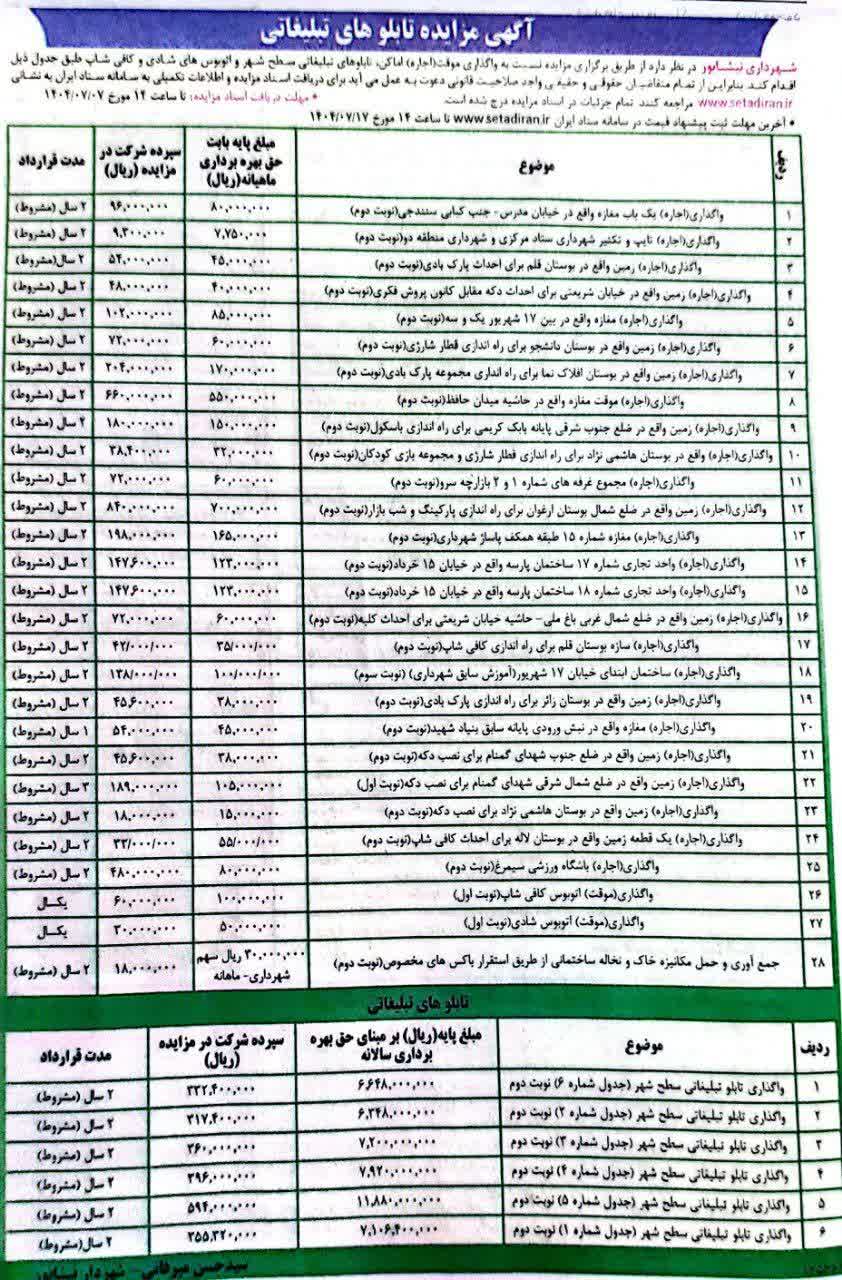 آگهی مزایده تابلو های تبلیغاتی
شهرداری نیشابور در نظر دارد از طریق برگزاری مزایده نسبت به واگذاری موقت(اجاره) اماکن، تابلوهای تبلیغاتی سطح شهر و اتوبوس های شادی و کافی شاپ طبق جدول ذیل
اقدام کند. بنابراین از تمام متقاضیان حقوقی و حقیقی واجد صلاحیت قانونی دعوت به عمل می آید برای دریافت اسناد مزایده و اطلاعات تکمیلی به سامانه ستاد ایران به نشانی
www.setadiran.ir مراجعه کنند. تمام جزئیات در اسناد مزایده درج شده است. * مهلت دریافت اسناد مزایده: تا ساعت ۱۴ مورخ ۱۴۰۴/۰۷/۰۷
* آخرین مهلت ثبت پیشنهاد قیمت در سامانه ستاد ایران www.setadiran.ir تا ساعت ۱۴ مورخ ۱۴۰۴/۰۷/۱۷
ردیف موضوع مبلغ پایه بابت حق بهره برداری ماهیانه(ریال) سپرده شرکت در مزایده (ریال) مدت قرارداد
۱ واگذاری(اجاره) یک باب مغازه واقع در خیابان مدرس- جنب کبابی سنندجی(نوبت دوم) ۸۰,۰۰۰,۰۰۰ ۹۶,۰۰۰,۰۰۰ ۲ سال (مشروط)
۲ واگذاری(اجاره) تایپ و تکثیر شهرداری ستاد مرکزی و شهرداری منطقه دو(نوبت دوم) ۷,۷۵۰,۰۰۰ ۹,۳۰۰,۰۰۰ ۲ سال (مشروط)
۳ واگذاری(اجاره) زمین واقع در بوستان قلم برای احداث پارک بادی(نوبت دوم) ۴۵,۰۰۰,۰۰۰ ۵۴,۰۰۰,۰۰۰ ۲ سال(مشروط)
۴ واگذاری(اجاره) زمین واقع در خیابان شریعتی برای احداث دکه مقابل کانون پروش فکری(نوبت دوم) ۴۰,۰۰۰,۰۰۰ ۴۸,۰۰۰,۰۰۰ ۲ سال (مشروط)
۵ واگذاری(اجاره) مغازه واقع در بین ۱۷ شهریور یک و سه(نوبت دوم) ۸۵,۰۰۰,۰۰۰ ۱۰۲,۰۰۰,۰۰۰ ۲ سال (مشروط)
۶ واگذاری(اجاره) زمین واقع در بوستان دانشجو برای راه اندازی قطار شارژی(نوبت دوم) ۶۰,۰۰۰,۰۰۰ ۷۲,۰۰۰,۰۰۰ ۲ سال (مشروط)
۷ واگذاری(اجاره) زمین واقع در بوستان افلاک نما برای راه اندازی مجموعه پارک بادی(نوبت دوم) ۱۷۰,۰۰۰,۰۰۰ ۲۰۴,۰۰۰,۰۰۰ ۲ سال (مشروط)
۸ واگذاری(اجاره) موقت مغازه واقع در حاشیه میدان حافظ(نوبت دوم) ۵۵۰,۰۰۰,۰۰۰ ۶۶۰,۰۰۰,۰۰۰ ۲ سال (مشروط)
۹ واگذاری(اجاره) زمین واقع در ضلع جنوب شرقی پایانه بابک کریمی برای راه اندازی باسکول(نوبت دوم) ۱۵۰,۰۰۰,۰۰۰ ۱۸۰,۰۰۰,۰۰۰ ۴ سال (مشروط)
۱۰ واگذاری(اجاره) واقع در بوستان هاشمی نژاد برای راه اندازی قطار شارژی و مجموعه بازی کودکان(نوبت دوم) ۳۲,۰۰۰,۰۰۰ ۳۸,۴۰۰,۰۰۰ ۲ سال (مشروط)
۱۱ واگذاری(اجاره) مجموع غرفه های شماره ۱ و ۲ بازارچه سرو(نوبت دوم) ۶۰,۰۰۰,۰۰۰ ۷۲,۰۰۰,۰۰۰ ۲ سال (مشروط)
۱۲ واگذاری(اجاره) زمین واقع در ضلع شمال بوستان ارغوان برای راه اندازی پارکینگ و شب بازار(نوبت دوم) ۷۰۰,۰۰۰,۰۰۰ ۸۴۰,۰۰۰,۰۰۰ ۲ سال (مشروط)
۱۳ واگذاری(اجاره) مغازه شماره ۱۵ طبقه همکف پاساژ شهرداری(نوبت دوم) ۱۶۵,۰۰۰,۰۰۰ ۱۹۸,۰۰۰,۰۰۰ ۲ سال (مشروط)
۱۴ واگذاری(اجاره) واحد تجاری شماره ۱۷ ساختمان پارسه واقع در خیابان ۱۵ خرداد(نوبت دوم) ۱۲۳,۰۰۰,۰۰۰ ۱۴۷,۶۰۰,۰۰۰ ۲ سال (مشروط)
۱۵ واگذاری(اجاره) واحد تجاری شماره ۱۸ ساختمان پارسه واقع در خیابان ۱۵ خرداد(نوبت دوم) ۱۲۳,۰۰۰,۰۰۰ ۱۴۷,۶۰۰,۰۰۰ ۲ سال (مشروط)
۱۶ واگذاری(اجاره) زمین واقع در ضلع شمال غربی باغ ملی- حاشیه خیابان شریعتی برای احداث کلبه(نوبت دوم) ۶۰,۰۰۰,۰۰۰ ۷۲,۰۰۰,۰۰۰ ۲ سال (مشروط)
۱۷ واگذاری(اجاره) سازه بوستان قلم برای راه اندازی کافی شاپ(نوبت دوم) ۳۵/۰۰۰/۰۰۰ ۴۲/۰۰۰/۰۰۰ ۲ سال (مشروط)
۱۸ واگذاری(اجاره) ساختمان ابتدای خیابان ۱۷ شهریور(آموزش سابق شهرداری) (نوبت سوم) ۱۰۰/۰۰۰/۰۰۰ ۱۳۸/۰۰۰/۰۰۰ ۲ سال (مشروط)
۱۹ واگذاری(اجاره) زمین واقع در بوستان زائر برای راه اندازی پارک بادی(نوبت دوم) ۳۸,۰۰۰,۰۰۰ ۴۵,۶۰۰,۰۰۰ ۲ سال (مشروط)
۲۰ واگذاری(اجاره) مغازه واقع در نبش ورودی پایانه سابق بنیاد شهید(نوبت دوم) ۴۵,۰۰۰,۰۰۰ ۵۴,۰۰۰,۰۰۰ ۱ سال (مشروط)
۲۱ واگذاری(اجاره) زمین واقع در ضلع جنوب شهدای گمنام برای نصب دکه(نوبت دوم) ۳۸,۰۰۰,۰۰۰ ۴۵,۶۰۰,۰۰۰ ۲ سال (مشروط)
۲۲ واگذاری(اجاره) زمین واقع در ضلع شمال شرقی شهدای گمنام برای نصب دکه(نوبت اول) ۱۰۵,۰۰۰,۰۰۰ ۱۸۹,۰۰۰,۰۰۰ ۳ سال (مشروط)
۲۳ واگذاری(اجاره) زمین واقع در بوستان هاشمی نژاد برای نصب دکه(نوبت دوم) ۱۵,۰۰۰,۰۰۰ ۱۸,۰۰۰,۰۰۰ ۲ سال (مشروط)
۲۴ واگذاری(اجاره) یک قطعه زمین واقع در بوستان لاله برای احداث کافی شاپ(نوبت دوم) ۵۵/۰۰۰/۰۰۰ ۳۳/۰۰۰/۰۰۰ ۲ سال (مشروط)
۲۵ واگذاری(اجاره) باشگاه ورزشی سیمرغ(نوبت دوم) ۸۰,۰۰۰,۰۰۰ ۴۸۰,۰۰۰,۰۰۰ ۲ سال (مشروط)
۲۶ واگذاری(موقت) اتوبوس کافی شاپ(نوبت اول) ۱۰۰,۰۰۰,۰۰۰ ۶۰,۰۰۰,۰۰۰ یکسال
۲۷ واگذاری(موقت) اتوبوس شادی(نوبت اول) ۵۰,۰۰۰,۰۰۰ ۳۰,۰۰۰,۰۰۰ یکسال
۲۸ جمع آوری و حمل مکانیزه خاک و نخاله ساختمانی از طریق استقرار باکس های مخصوص(نوبت دوم) ۳۰,۰۰۰,۰۰۰ ریال سهم شهرداری- ماهانه ۱۸,۰۰۰,۰۰۰ ۲ سال (مشروط)
تابلو های تبلیغاتی
ردیف موضوع مبلغ پایه(ریال) بر مبنای حق بهره برداری سالانه سپرده شرکت در مزایده (ریال) مدت قرارداد
۱ واگذاری تابلو تبلیغاتی سطح شهر (جدول شماره ۶) نوبت دوم ۶,۶۴۸,۰۰۰,۰۰۰ ۳۳۲,۴۰۰,۰۰۰ ۲ سال (مشروط)
۲ واگذاری تابلو تبلیغاتی سطح شهر (جدول شماره ۲) نوبت دوم ۶,۳۴۸,۰۰۰,۰۰۰ ۳۱۷,۴۰۰,۰۰۰ ۲ سال (مشروط)
۳ واگذاری تابلو تبلیغاتی سطح شهر (جدول شماره ۳) نوبت دوم ۷,۲۰۰,۰۰۰,۰۰۰ ۳۶۰,۰۰۰,۰۰۰ ۲ سال (مشروط)
۴ واگذاری تابلو تبلیغاتی سطح شهر (جدول شماره ۴) نوبت دوم ۷,۹۲۰,۰۰۰,۰۰۰ ۳۹۶,۰۰۰,۰۰۰ ۲ سال (مشروط)
۵ واگذاری تابلو تبلیغاتی سطح شهر (جدول شماره ۵) نوبت دوم ۱۱,۸۸۰,۰۰۰,۰۰۰ ۵۹۴,۰۰۰,۰۰۰ ۲ سال (مشروط)
۶ واگذاری تابلو تبلیغاتی سطح شهر (جدول شماره ۱) نوبت دوم ۷,۱۰۶,۴۰۰,۰۰۰ ۳۵۵,۳۲۰,۰۰۰ ۲ سال(مشروط)
سیدحسن میرفانی- شهردار نیشابور